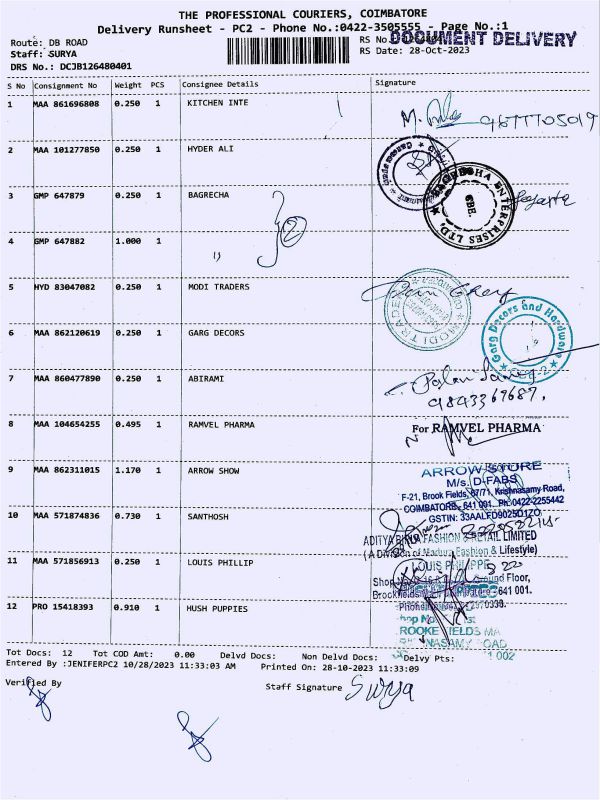 THE PROFESSIONAL COURIERS, COIMBATORE
Delivery Runsheet - PC2 - Phone No.:0422-3505555 - Page No.:1
Route: DB ROAD
RS No.
DOCUMENT DELIVERY
Staff: SURYA
RS Date: 28-Oct-2023
DRS No.: DCJB126480401
S No Consignment No Weight PCS Consignee Details Signature
1 MAA 861696808 0.250 1 KITCHEN INTE
9677705019
2 MAA 101277850 0.250 1 HYDER ALI
3 GMP 647879 0.250 1 BAGRECHA
BAGRECHA ENTERPRISES LTD,
CBE.
4 GMP 647882 1.000 1
5 HYD 83047082 0.250 1 MODI TRADERS
MODI TRADERS
6 MAA 862120619 0.250 1 GARG DECORS
Garg Decors and Hardware
7 MAA 860477890 0.250 1 ABIRAMI
9843367687.
8 MAA 104654255 0.495 1 RAMVEL PHARMA
For RAMVEL PHARMA
9 MAA 862311015 1.170 1 ARROW SHOW
ARROW STORE
M/s. D-FABS
F-21, Brook Fields, 67/71, Krishnasamy Road,
COIMBATORE - 641 001. Ph:0422-2255442
GSTIN: 33AALFD9025D1ZO
10 MAA 571874836 0.730 1 SANTHOSH
ADITYA BIRLA FASHION & RETAIL LIMITED
(A Division of Madura Fashion & Lifestyle)
11 MAA 571856913 0.250 1 LOUIS PHILLIP
LOUIS PHILIPPE
Ground Floor,
641 001.
12 PRO 15418393 0.910 1 HUSH PUPPIES
Tot Docs: 12 Tot COD Amt: 0.00 Delvd Docs: Non Delvd Docs: Delvy Pts:
Entered By :JENIFERPC2 10/28/2023 11:33:03 AM Printed On: 28-10-2023 11:33:09
Verified By
Staff Signature Surya